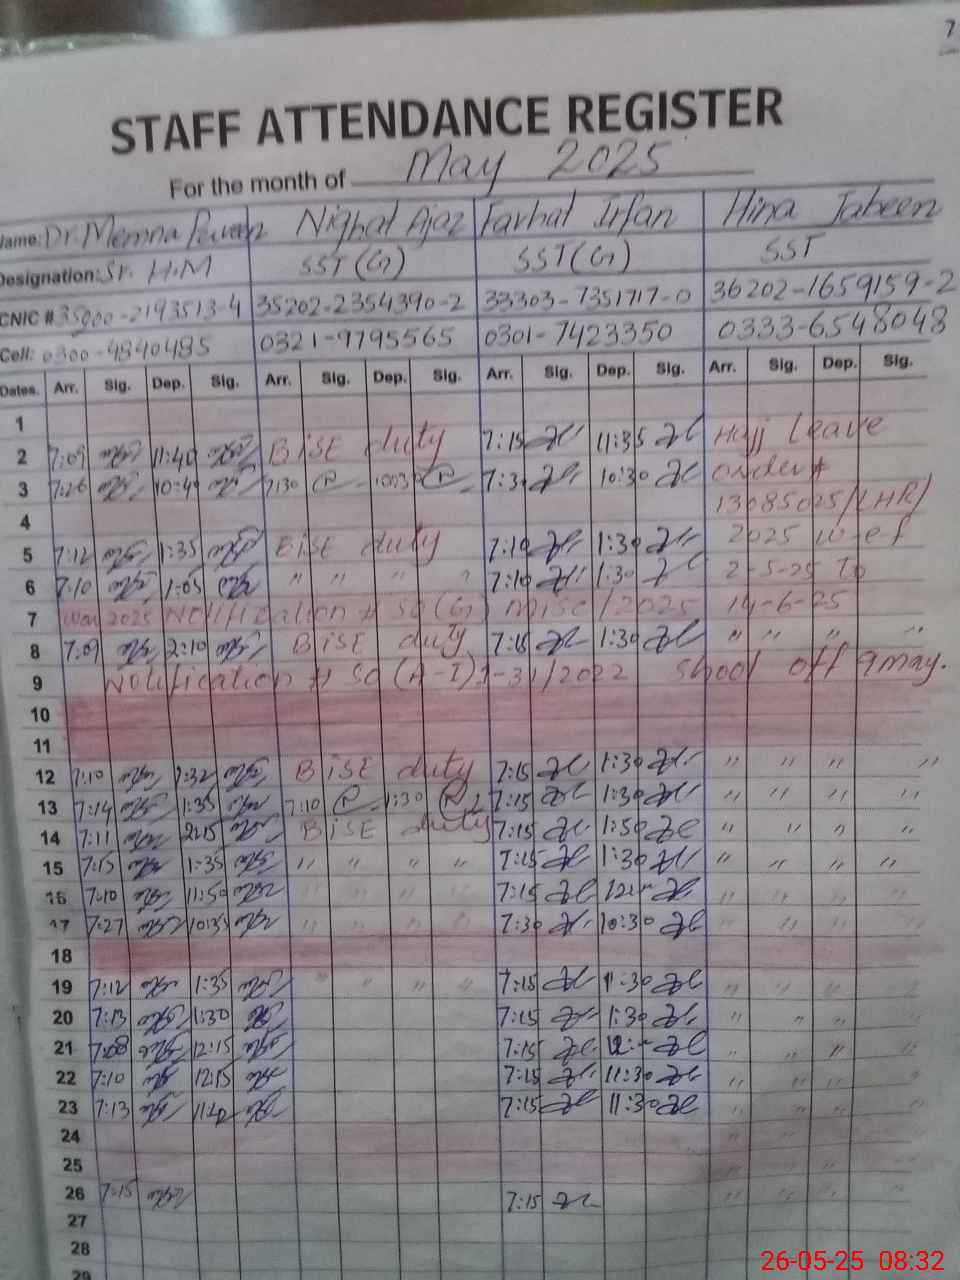 7
STAFF ATTENDANCE REGISTER
For the month of May 2025
Name: Dr. Memna Perveen Nighat Ajaz Farhat Irfan Hina Jabeen
Designation: Sr. H.M SST(G) SST(G) SST
CNIC # 35000-2193513-4 35202-2354390-2 33303-7351717-0 36202-1659159-2
Cell: 0300-4840485 0321-9795565 0301-7423350 0333-6548048
Dates. Arr. Sig. Dep. Sig. Arr. Sig. Dep. Sig. Arr. Sig. Dep. Sig. Arr. Sig. Dep. Sig.
1
2 7:09 11:40 BISE duty 7:15 11:35 Hajj Leave
3 7:26 10:40 7:30 7:30 10:30 Order #
4 13085025/(LHR)/
5 7:12 1:35 BISE duty 7:10 1:30 2025 w-ef
6 7:10 1:05 " " " 7:10 1:30 2-5-25 To
7 2025 Notification # SO(G) misc/2025 14-6-25
8 7:09 2:10 BISE duty 7:15 1:30 " " " "
9 Notification # SO (A-I)1-31/2022 Shool off 9 may.
10
11
12 7:10 1:32 BISE duty 7:15 1:30 " " " "
13 7:14 1:35 7:10 1:30 7:15 1:30 " " " "
14 7:11 2:15 BISE duty 7:15 1:50 " " " "
15 7:15 1:35 " " " " 7:15 1:30 " " " "
16 7:10 11:50 " " " " 7:15 12:- " " " "
17 7:27 10:35 " " " " 7:30 10:30 " " " "
18
19 7:12 1:35 " " " " 7:15 11:30 " " " "
20 7:13 1:30 7:15 1:30 " " " "
21 7:08 12:15 7:15 12:- " " " "
22 7:10 12:15 7:15 11:30 " " " "
23 7:13 11:40 7:15 11:30 " " " "
24 " " " "
25 " " " "
26 7:15 7:15 " " " "
27
28
29
26-05-25 08:32